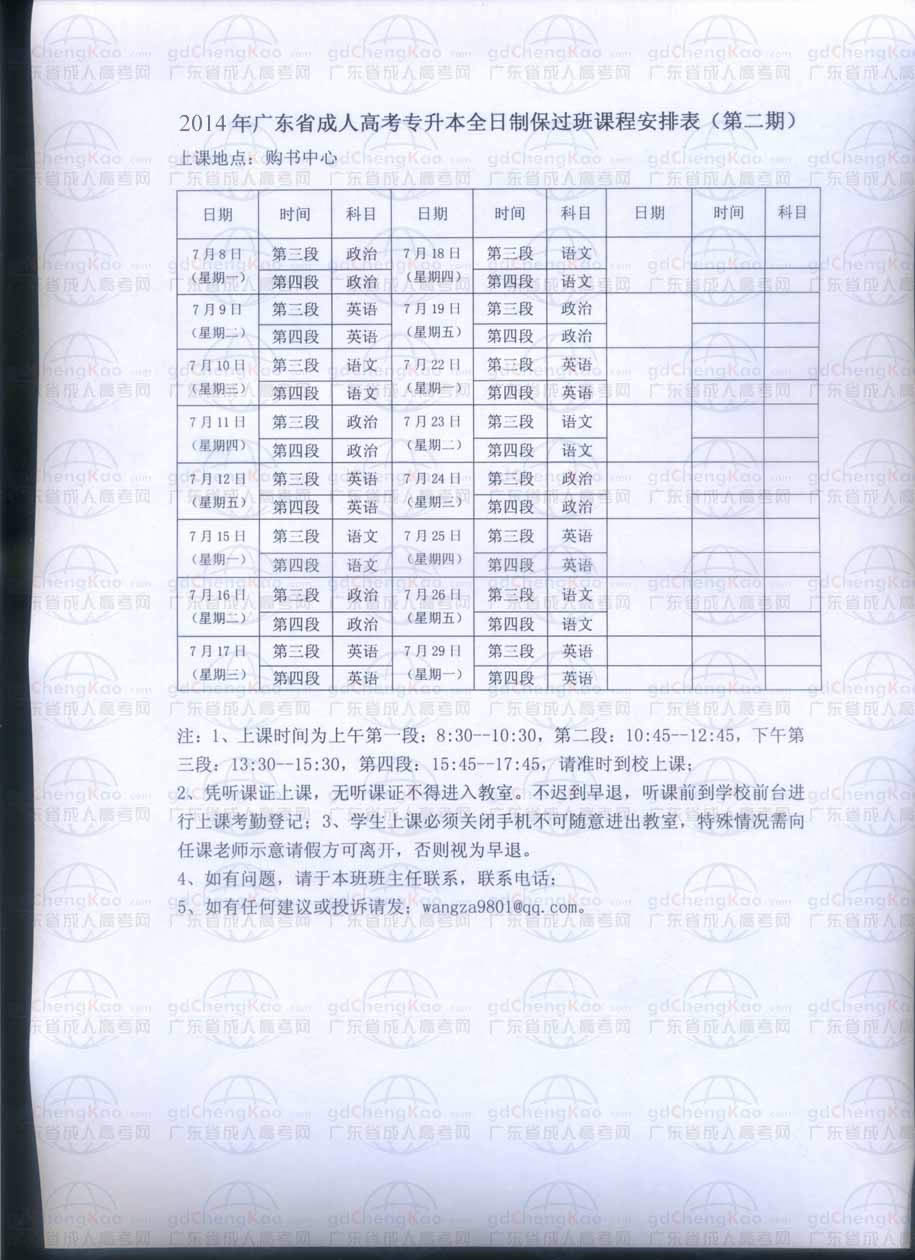 2014年广东省成人高考专升本全日制保过班课程安排表（第二期）
上课地点：购书中心
日期 时间 科目 日期 时间 科目 日期 时间 科目
7月8日（星期一） 第三段 政治 7月18日（星期四） 第三段 语文
第四段 政治 第四段 语文
7月9日（星期二） 第三段 英语 7月19日（星期五） 第三段 政治
第四段 英语 第四段 政治
7月10日（星期三） 第三段 语文 7月22日（星期一） 第三段 英语
第四段 语文 第四段 英语
7月11日（星期四） 第三段 政治 7月23日（星期二） 第三段 语文
第四段 政治 第四段 语文
7月12日（星期五） 第三段 英语 7月24日（星期三） 第三段 政治
第四段 英语 第四段 政治
7月15日（星期一） 第三段 语文 7月25日（星期四） 第三段 英语
第四段 语文 第四段 英语
7月16日（星期二） 第三段 政治 7月26日（星期五） 第三段 语文
第四段 政治 第四段 语文
7月17日（星期三） 第三段 英语 7月29日（星期一） 第三段 英语
第四段 英语 第四段 英语
注：1、上课时间为上午第一段：8:30--10:30，第二段：10:45--12:45，下午第
三段：13:30--15:30，第四段：15:45--17:45，请准时到校上课；
2、凭听课证上课，无听课证不得进入教室。不迟到早退，听课前到学校前台进
行上课考勤登记；3、学生上课必须关闭手机不可随意进出教室，特殊情况需向
任课老师示意请假方可离开，否则视为早退。
4、如有问题，请于本班班主任联系，联系电话：
5、如有任何建议或投诉请发：wangza9801@qq.com。
gdChengKao.com
广东省成人高考网